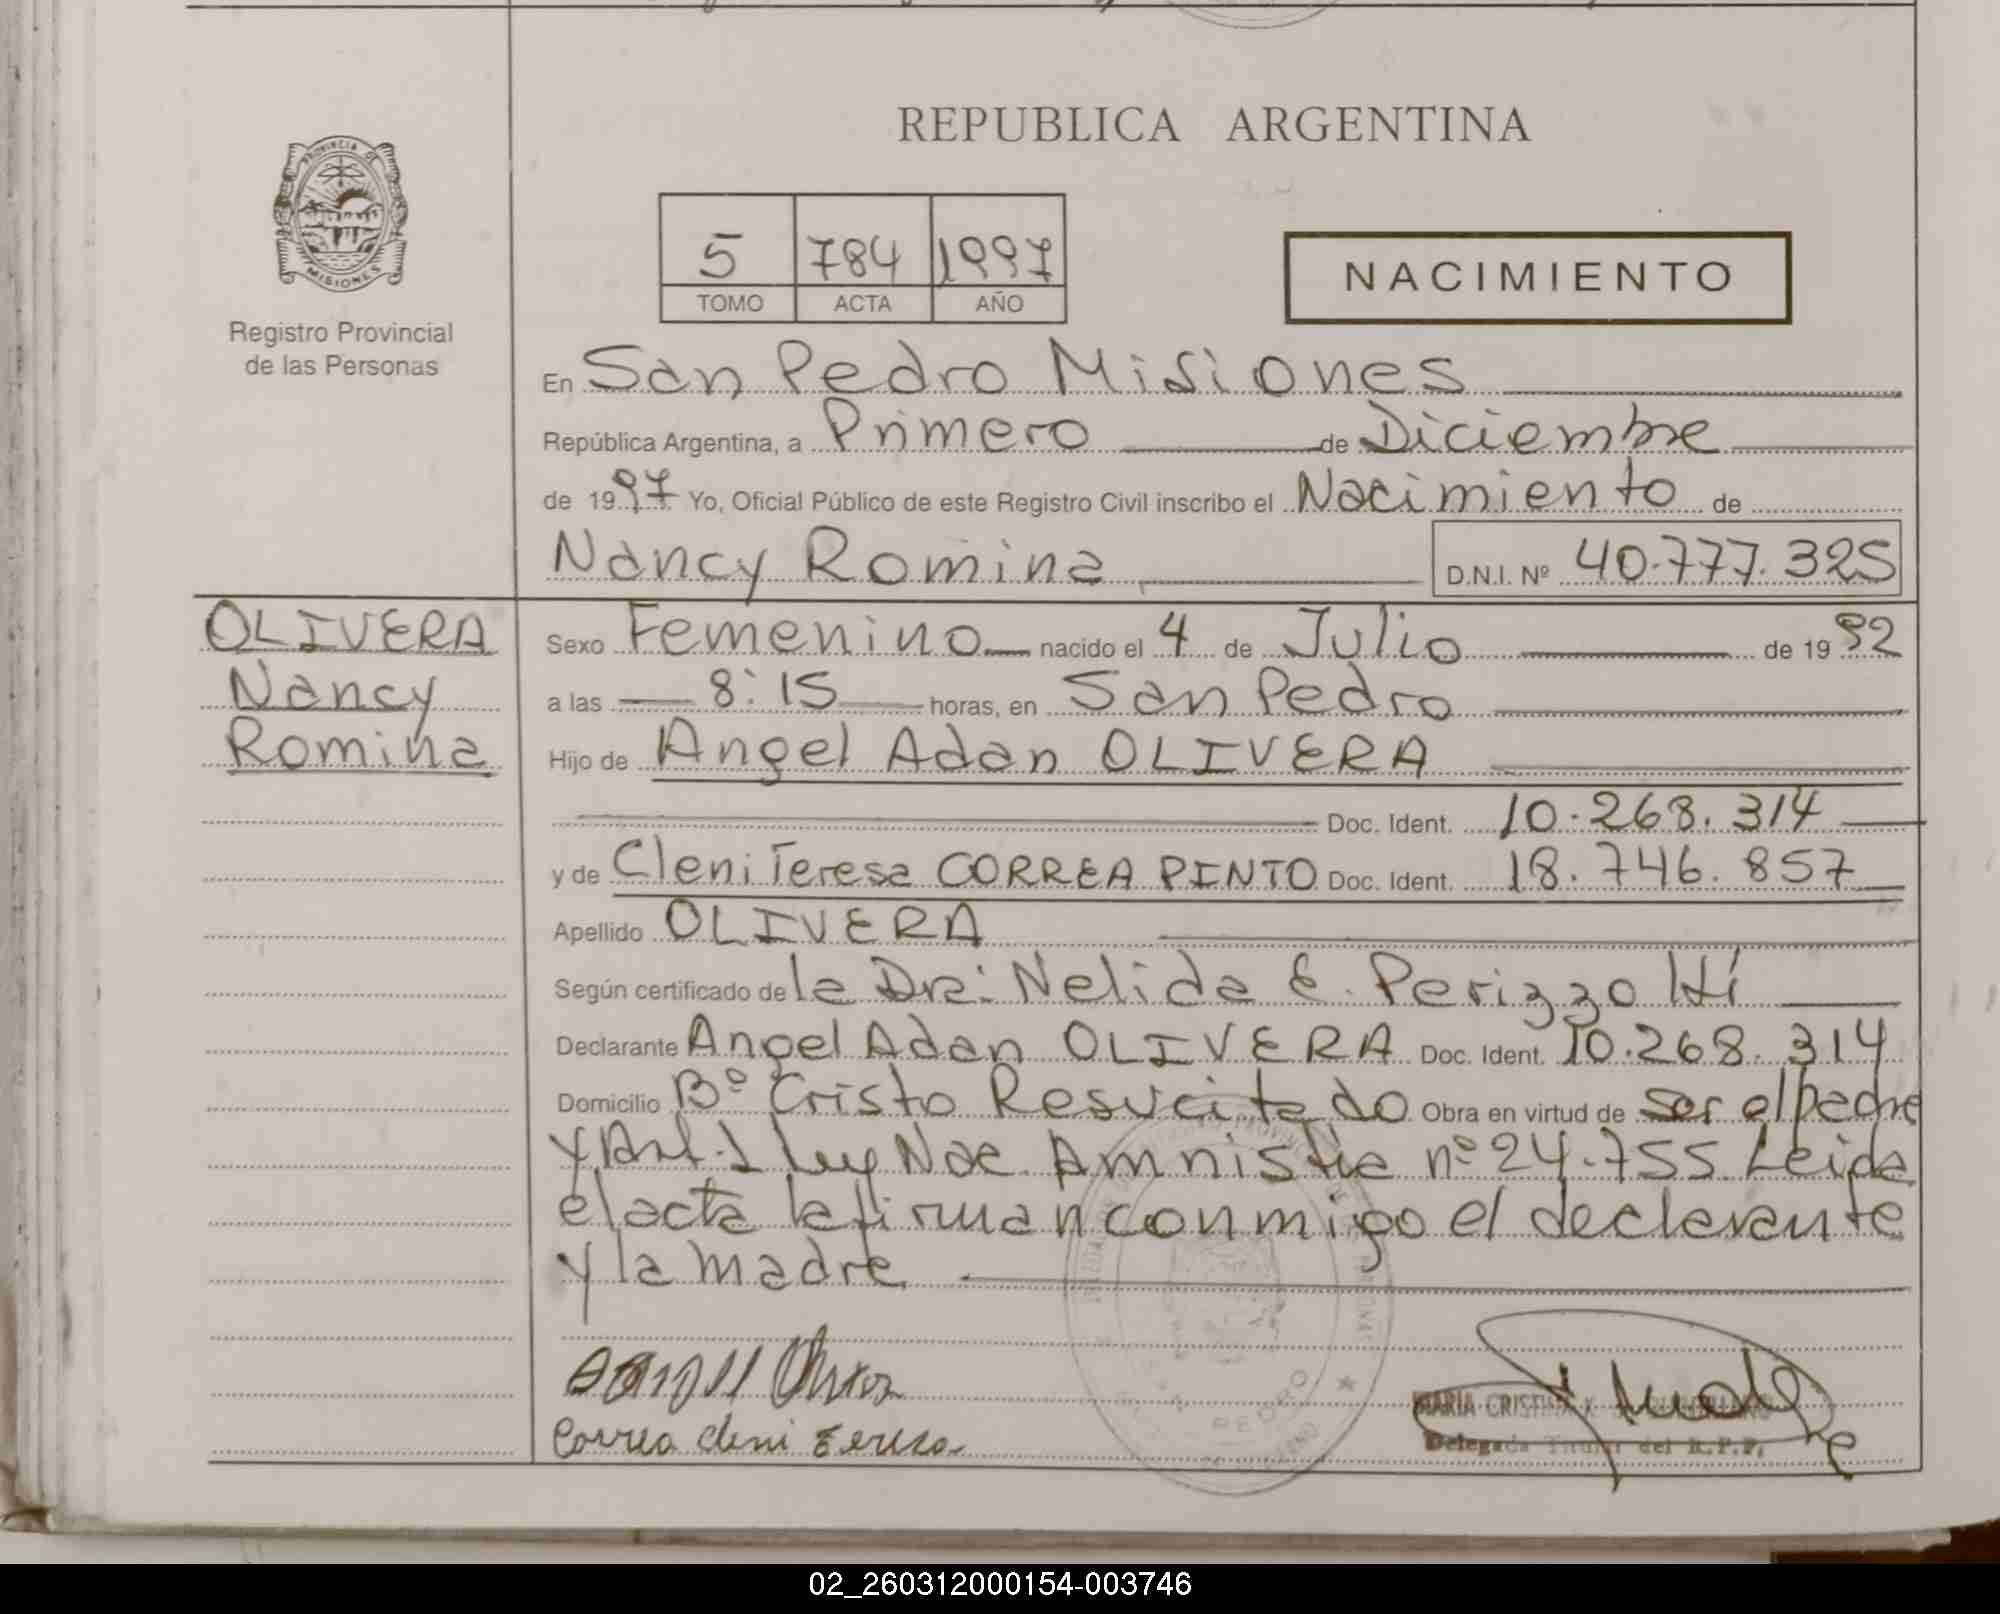 REPUBLICA ARGENTINA
PROVINCIA DE MISIONES
Registro Provincial
de las Personas
5 784 1997
TOMO ACTA AÑO
NACIMIENTO
En San Pedro Misiones
República Argentina, a Primero de Diciembre
de 1997 Yo, Oficial Público de este Registro Civil inscribo el Nacimiento de
Nancy Romina D.N.I. Nº 40.777.325
OLIVERA
Nancy
Romina
Sexo Femenino nacido el 4 de Julio de 1992
a las 8:15 horas, en San Pedro
Hijo de Angel Adan OLIVERA
Doc. Ident. 10.268.314
y de Cleni Teresa CORREA PINTO Doc. Ident. 18.746.857
Apellido OLIVERA
Según certificado de la Dra: Nelida E. Perizzo
Declarante Angel Adan OLIVERA Doc. Ident. 10.268.314
Domicilio Bº Cristo Resucitado Obra en virtud de ser el padre
y Art. 1 Ley Nac Amnistia nº 24.755 Leida
el acta la firman conmigo el declarante
y la madre
Correa cleni tereza
MARIA CRISTINA
Delegada Titular del R.P.P.
02_260312000154-003746